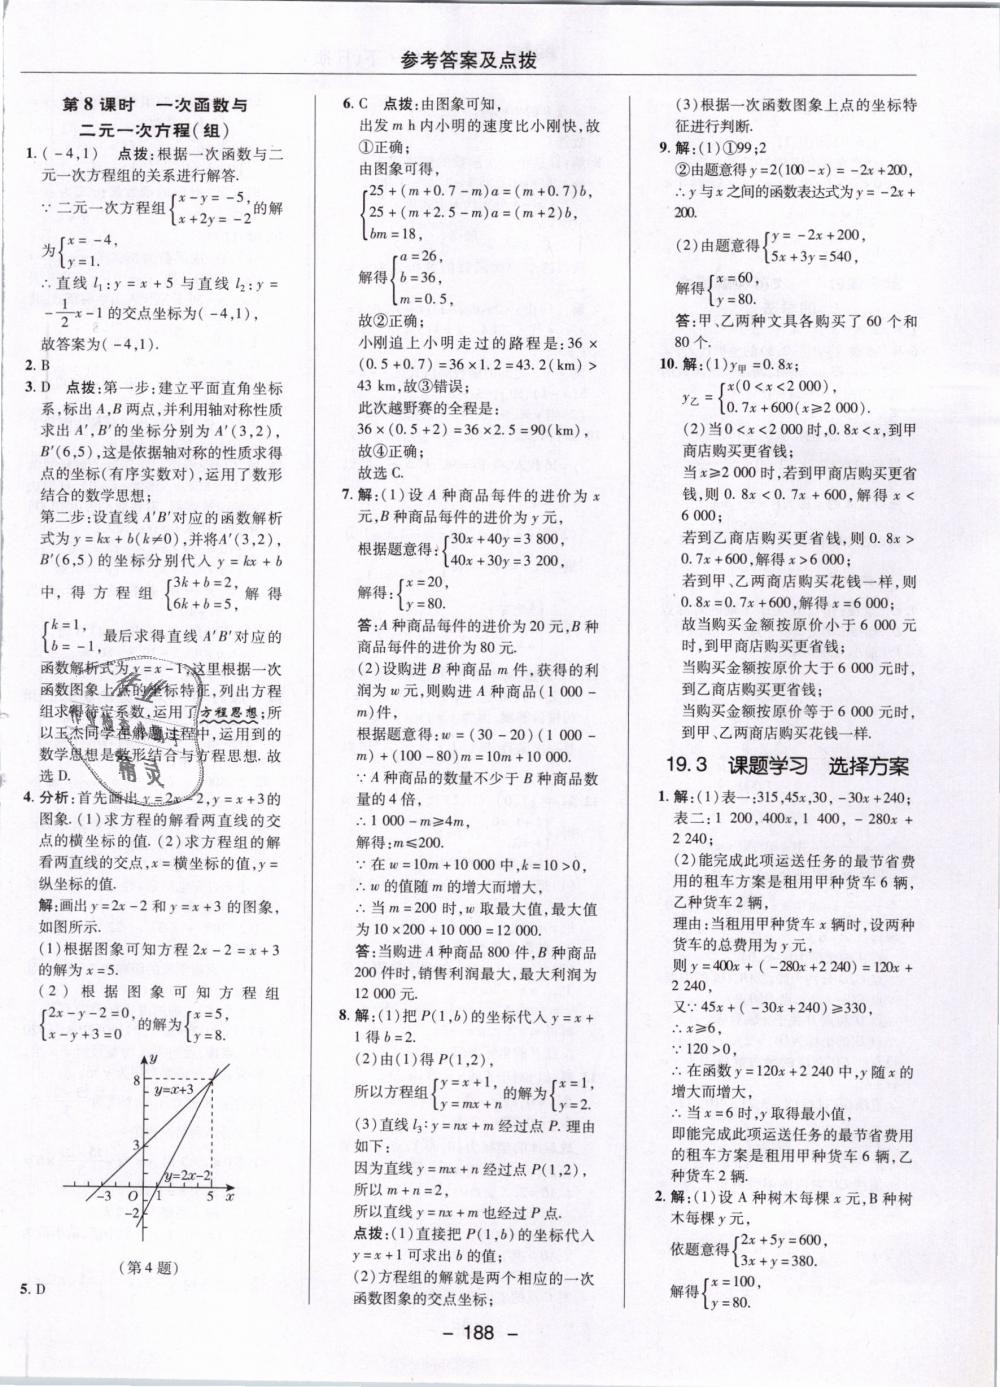 参考答案及点拨
第8课时 一次函数与
二元一次方程(组)
1. (-4,1) 点拨:根据一次函数与二
元一次方程组的关系进行解答.
∵二元一次方程组{x-y=-5, x+2y=-2的解
为{x=-4, y=1.
∴直线 l₁:y=x+5 与直线 l₂:y=
-1/2x-1的交点坐标为(-4,1),
故答案为(-4,1).
2. B
3. D 点拨:第一步:建立平面直角坐标
系,标出A,B两点,并利用轴对称性质
求出A′,B′的坐标分别为A′(3,2),
B′(6,5),这是依据轴对称的性质求得
点的坐标(有序实数对),运用了数形
结合的数学思想;
第二步:设直线A′B′对应的函数解析
式为y=kx+b(k≠0),并将A′(3,2),
B′(6,5)的坐标分别代入y=kx+b
中,得方程组{3k+b=2, 6k+b=5,解得
{k=1, b=-1,最后求得直线A′B′对应的
函数解析式为y=x-1,这里根据一次
函数图象上点的坐标特征,列出方程
组求得待定系数,运用了方程思想;所
以王杰同学在解题过程中,运用到的
数学思想是数形结合与方程思想. 故
选D.
4. 分析:首先画出y=2x-2,y=x+3的
图象.(1)求方程的解看两直线的交
点的横坐标的值.(2)求方程组的解
看两直线的交点,x=横坐标的值,y=
纵坐标的值.
解:画出y=2x-2和y=x+3的图象,
如图所示.
(1)根据图象可知方程2x-2=x+3
的解为x=5.
(2)根据图象可知方程组
{2x-y-2=0, x-y+3=0的解为{x=5, y=8.
y
8
y=x+3
3
y=2x-2
-3 O 1 5 x
-2
(第4题)
5. D
6. C 点拨:由图象可知,
出发m h内小明的速度比小刚快,故
①正确;
由图象可得,
{25+(m+0.7-m)a=(m+0.7)b,
25+(m+2.5-m)a=(m+2)b,
bm=18,
解得{a=26, b=36, m=0.5,
故②正确;
小刚追上小明走过的路程是:36×
(0.5+0.7)=36×1.2=43.2(km)>
43 km,故③错误;
此次越野赛的全程是:
36×(0.5+2)=36×2.5=90(km),
故④正确;
故选C.
7. 解:(1)设A种商品每件的进价为x
元,B种商品每件的进价为y元,
根据题意得:{30x+40y=3 800, 40x+30y=3 200,
解得:{x=20, y=80.
答:A种商品每件的进价为20元,B种
商品每件的进价为80元.
(2)设购进B种商品m件,获得的利
润为w元,则购进A种商品(1 000-
m)件,
根据题意得:w=(30-20)(1 000-
m)+(100-80)m=10m+10 000.
∵A种商品的数量不少于B种商品数
量的4倍,
∴1 000-m≥4m,
解得:m≤200.
∵在w=10m+10 000中,k=10>0,
∴w的值随m的增大而增大,
∴当m=200时,w取最大值,最大值
为10×200+10 000=12 000.
答:当购进A种商品800件,B种商品
200件时,销售利润最大,最大利润为
12 000元.
8. 解:(1)把P(1,b)的坐标代入y=x+
1得b=2.
(2)由(1)得P(1,2),
所以方程组{y=x+1, y=mx+n的解为{x=1, y=2.
(3)直线l₃:y=nx+m经过点P. 理由
如下:
因为直线y=mx+n经过点P(1,2),
所以m+n=2,
所以直线y=nx+m也经过P点.
点拨:(1)直接把P(1,b)的坐标代入
y=x+1可求出b的值;
(2)方程组的解就是两个相应的一次
函数图象的交点坐标;
(3)根据一次函数图象上点的坐标特
征进行判断.
9. 解:(1)①99;2
②由题意得y=2(100-x)=-2x+200,
∴y与x之间的函数表达式为y=-2x+
200.
(2)由题意得{y=-2x+200, 5x+3y=540,
解得{x=60, y=80.
答:甲、乙两种文具各购买了60个和
80个.
10. 解:(1)y甲=0.8x;
y乙={x(0<x<2 000), 0.7x+600(x≥2 000).
(2)当0<x<2 000时,0.8x<x,到甲
商店购买更省钱;
当x≥2 000时,若到甲商店购买更省
钱,则0.8x<0.7x+600,解得x<
6 000;
若到乙商店购买更省钱,则0.8x>
0.7x+600,解得x>6 000;
若到甲、乙两商店购买花钱一样,则
0.8x=0.7x+600,解得x=6 000;
故当购买金额按原价小于6 000元
时,到甲商店购买更省钱;
当购买金额按原价大于6 000元时,
到乙商店购买更省钱;
当购买金额按原价等于6 000元时,
到甲、乙两商店购买花钱一样.
19.3 课题学习 选择方案
1. 解:(1)表一:315,45x,30,-30x+240;
表二:1 200,400x,1 400,-280x+
2 240;
(2)能完成此项运送任务的最节省费
用的租车方案是租用甲种货车6辆,
乙种货车2辆,
理由:当租用甲种货车x辆时,设两种
货车的总费用为y元,
则y=400x+(-280x+2 240)=120x+
2 240,
又∵45x+(-30x+240)≥330,
∴x≥6,
∵120>0,
∴在函数y=120x+2 240中,y随x的
增大而增大,
∴当x=6时,y取得最小值,
即能完成此项运送任务的最节省费用
的租车方案是租用甲种货车6辆,乙
种货车2辆.
2. 解:(1)设A种树木每棵x元,B种树
木每棵y元,
依题意得{2x+5y=600, 3x+y=380.
解得{x=100, y=80.
- 188 -